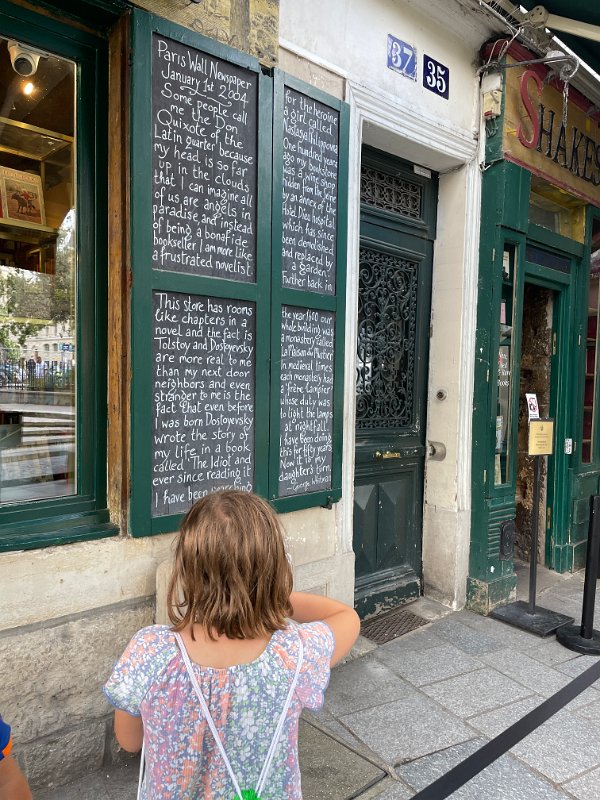 Paris Wall Newspaper
January 1st 2004
Some people call
me the Don
Quixote of the
Latin Quarter because
my head is so far
up in the clouds
that I can imagine all
of us are angels in
paradise, and instead
of being a bonafide
bookseller I am more like
a frustrated novelist
This store has rooms
like chapters in a
novel and the fact is
Tolstoy and Dostoyevsky
are more real to me
than my next door
neighbors and even
stranger to me is the
fact that even before
I was born Dostoyevsky
wrote the story of
my life in a book
called 'The Idiot' and
ever since reading it
I have been searching
for the heroine
a girl called
Nastasya Filipovna
One hundred years
ago my bookstore
was a wine shop
hidden from the Seine
by an annex of the
Hotel Dieu hospital
which has since
been demolished
and replaced by
a garden.
Further back in
the year 1600 our
whole building was
a monastery called
La Maison du Mustier
In medieval times
each monastery had
a frère Lampier
whose duty was
to light the lamps
at nightfall.
I have been doing
this for fifty years
Now it is my
daughter's turn.
George Whitman
37
35
SHAKES